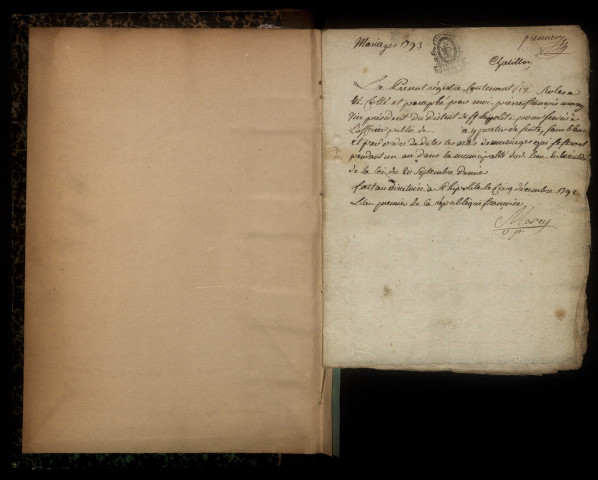 Mariages 1793
premier
Chatillon
Le Present registre Contenant Six Roles a
été Cotté et paraphé par moi pierre françois morey
vice président du district de St hippolite pour servir à
L'officier public de a y porter de suite, sans blanc
et par ordre de dates les actes de mariages qui se feront
pendant un an dans la municipalité du Lieu
de la loi du 20 Septembre dernier
fait au directoire à St hippolite le Cinq décembre 1792
L'an premier de la république françoise
Morey
v. p.